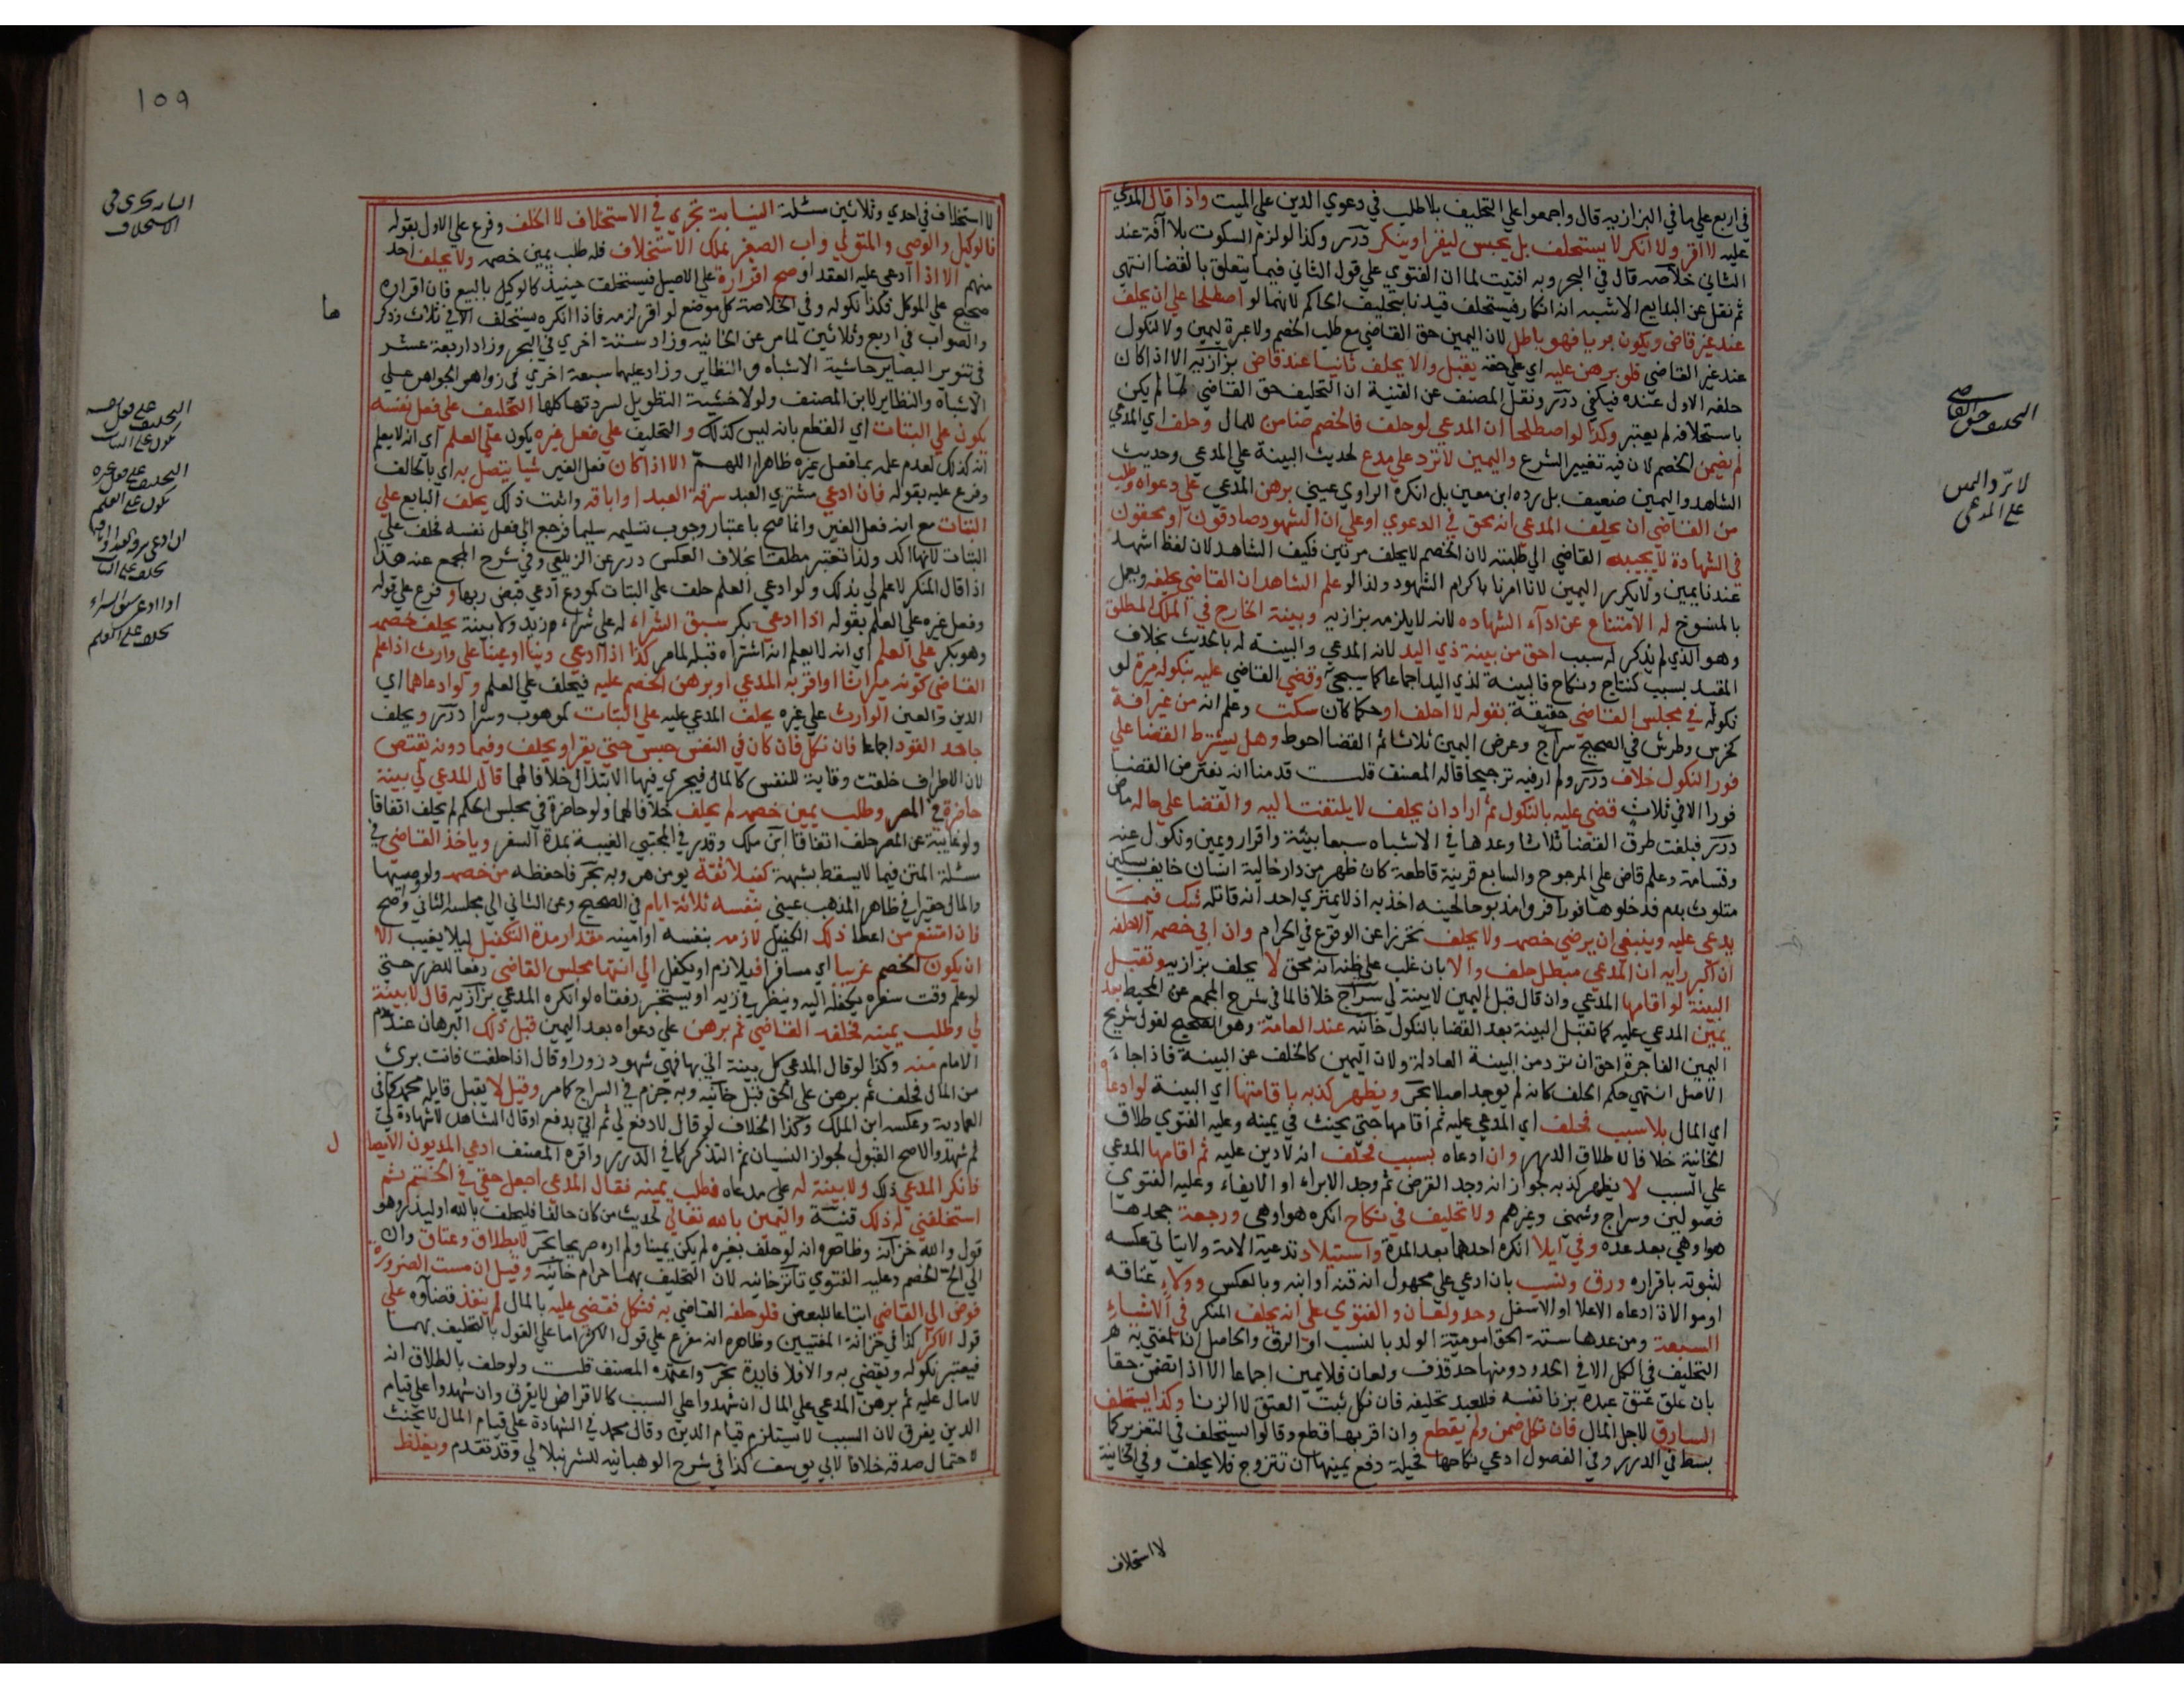 في اربع علي ما في البزازيه قال واجمعوا علي التحليف بلا طلب في دعوي الدين علي الميت واذا قال المدعي
عليه لا اقر ولا انكر لا يستحلف بل يحبس ليقر او ينكر درر وكذا لو لزم السكوت بلا آفة عند
الثاني خلاصه قال في البحر وبه افتيت لما ان الفتوي علي قول الثاني فيما يتعلق بالقضا انتهي
ثم نقل عن البدايع الاشبه انه انكار فيستحلف قيدنا بتحليف الحاكم لانهما لو اصطلحا علي ان يحلف
عند غير قاض ويكون بريا فهو باطل لان اليمين حق القاضي مع طلب الخصم ولا عبرة ليمين ولا نكول
عند غير القاضي فلو برهن عليه اي علي حقه يقبل والا يحلف ثانيا عند قاض بزازيه الا اذا كان
حلفه الاول عنده فيكفي درر ونقل المصنف عن القنية ان التحليف حق القاضي فما لم يكن
باستحلافه لم يعتبر وكذا لو اصطلحا ان المدعي لو حلف فالخصم ضامن للمال وحلف اي المدعي
لم يضمن الخصم لان فيه تغيير الشرع واليمين لا ترد علي مدع لحديث البينة علي المدعي وحديث
الشاهد واليمين ضعيف بل رده ابن معين بل انكره الراوي عيني برهن المدعي علي دعواه وطلب
من القاضي ان يحلف المدعي انه محق في الدعوي او علي ان الشهود صادقون او محقون
في الشهادة لا يجيبه القاضي الي طلبته لان الخصم لا يحلف مرتين فكيف الشاهد لان لفظ اشهد
عندنا يمين ولا يكرر اليمين لانا امرنا باكرام الشهود ولذا لو علم الشاهد ان القاضي يحلفه ويعمل
بالمنسوخ له الامتناع عن اداء الشهاده لانه لا يلزمه بزازيه وبينة الخارج في الملك المطلق
وهو الذي لم يذكر له سبب احق من بينة ذي اليد لانه المدعي والبينه له بالحديث بخلاف
المقيد بسبب كنتاج ونكاح فالبينة لذي اليد اجماعا كما سيجئ وقضي القاضي عليه بنكوله مرة لو
نكوله في مجلس القاضي حقيقة بقوله لا احلف او حكما كان سكت وعلم انه من غير افة
كخرس وطرش في الصحيح سراج وعرض اليمين ثلاثا ثم القضا احوط وهل يشترط القضا علي
فور النكول خلاف درر ولم ار فيه ترجيحا قاله المصنف قلت قدمنا انه يفترض القضا
فورا الا في ثلاث قضي عليه بالنكول ثم اراد ان يحلف لا يلتفت اليه والقضا علي حاله ماض
درر فبلغت طرق القضا ثلاثا وعدها في الاشباه سبعا بينة واقرار ويمين ونكول عنه
وقسامة وعلم قاض علي المرجوح والسابع قرينة قاطعة كان ظهر من دار خالية انسان خايف بسكين
متلوث بدم فدخلوها فورا فراوا مذبوحا لحينه اخذ به اذ لا يمتري احد انه قاتله شك فيما
يدعي عليه وينبغي ان يرضي خصمه ولا يحلف تحرزا عن الوقوع في الحرام وان ابي خصمه الا حلفه
ان اكبر رايه ان المدعي مبطل حلف والا بان غلب علي ظنه انه محق لا يحلف بزازيه وتقبل
البينة لو اقامها المدعي وان قال قبل اليمين لا بينة لي سراج خلافا لما في شرح المجمع عن المحيط بعد
يمين المدعي عليه كما تقبل البينة بعد القضا بالنكول خانيه عند العامة وهو الصحيح لقول شريح
اليمين الفاجرة احق ان ترد من البينة العادلة ولان اليمين كالخلف عن البينة فاذا جاء
الاصل انتهي حكم الخلف كانه لم يوجد اصلا بحر ويظهر كذبه باقامتها اي البينة لو ادعاه
اي المال بلا سبب فحلف اي المدعي عليه ثم اقامها حتي يحنث في يمينه وعليه الفتوي طلاق
الخانية خلافا لاطلاق الدرر وان ادعاه بسبب فحلف انه لا دين عليه ثم اقامها المدعي
علي السبب لا يظهر كذبه لجواز انه وجد القرض ثم وجد الابراء او الايفاء وعليه الفتوي
فصولين وسراج وشمني وغيرهم ولا تحليف في نكاح انكره هو او هي ورجعة جحدها
هو او هي بعد عده وفي ايلا انكره احدهما بعد المدة واستيلاد تدعيه الامة ولا يتاتي عكسه
لثبوته باقراره ورق ونسب بان ادعي علي مجهول انه قنه او ابنه وبالعكس وولاء عتاقه
او موالاة ادعاه الاعلا او الاسفل وحد ولعان والفتوي علي انه يحلف المنكر في الاشياء
السبعة ومن عدها ستة الحق امومية الولد بالنسب او الرق والحاصل ان المفتي به
التحليف في الكل الا في الحدود ومنها حد قذف ولعان فلا يمين اجماعا الا اذا تضمن حقا
بان علق عتق عبده بزنا نفسه فللعبد تحليفه فان نكل ثبت العتق لا الزنا وكذا يستحلف
السارق لاجل المال فان نكل ضمن ولم يقطع وان اقر بها قطع وقالوا يستحلف في التعزير كما
بسط في الدرر وفي الفصول ادعي نكاحها فحيلة دفع يمينها ان تتزوج فلا يحلف وفي الخانية
لا استحلاف
التحليف حق القاضي
لا ترد اليمين
علي المدعي
١٥٩
لا استحلاف في احدي وثلاثين مسئلة النيابة تجري في الاستحلاف لا الحلف وفرع علي الاول بقوله
فالوكيل والوصي والمتولي واب الصغير يملك الاستحلاف فله طلب يمين خصمه ولا يحلف احد
منهم الا اذا ادعي عليه العقد او صح اقراره علي الاصيل فيستحلف حينيذ كالوكيل بالبيع فان اقراره
صحيح علي الموكل فكذا نكوله وفي الخلاصة كل موضع لو اقر لزمه فاذا انكره يستحلف الا في ثلاث وذكر
والصواب في اربع وثلاثين لما مر عن الخانيه وزاد ستة اخري في البحر وزاد اربعة عشر
في تنوير البصاير حاشية الاشباه والنظاير وزاد عليها سبعة اخري في زواهر الجواهر علي
الاشباه والنظاير لابن المصنف ولولا خشية التطويل لسردتها كلها التحليف علي فعل نفسه
يكون علي البتات اي القطع بانه ليس كذلك والتحليف علي فعل غيره يكون علي العلم اي انه لا يعلم
انه كذلك لعدم علمه بما فعل غيره ظاهرا اللهم الا اذا كان فعل الغير شيا يتصل به اي بالحالف
وفرع عليه بقوله فان ادعي مشتري العبد سرقة العبد او اباقه واثبت ذلك يحلف البايع علي
البتات مع انه فعل الغير وانما صح باعتبار وجوب تسليمه سليما فرجع الي فعل نفسه فحلف علي
البتات لانها اكد ولذا تعتبر مطلقا بخلاف العكس درر عن الزيلعي وفي شرح المجمع عنه هذا
اذا قال المنكر لا علم لي بذلك ولو ادعي العلم حلف علي البتات كمودع ادعي قبض ربها وفرع علي قوله
وفعل غيره علي العلم بقوله اذا ادعي بكر سبق الشراء له علي شراء زيد ولا بينة يحلف خصمه
وهو بكر علي العلم اي انه لا يعلم انه اشتراه قبله لما مر كذا اذا ادعي دينا او عينا علي وارث اذا علم
القاضي كونه ميراثا او اقر به المدعي او برهن الخصم عليه فيحلف علي العلم ولو ادعاهما اي
الدين والعين الوارث علي غيره يحلف المدعي عليه علي البتات كموهوب وشرا درر ويحلف
جاحد القود اجماعا فان نكل فان كان في النفس حبس حتي يقر او يحلف وفيما دونه يقتص
لان الاطراف خلقت وقاية للنفس كالمال فيجري فيها الابتذال خلافا لهما قال المدعي لي بينة
حاضرة في المصر وطلب يمين خصمه لم يحلف خلافا لهما ولو حاضرة في مجلس الحكم لم يحلف اتفاقا
ولو غايبة عن المصر حلف اتفاقا ابن ملك وقدر في المجتبي الغيبة بمدة السفر وياخذ القاضي في
مسئلة المتن فيما لا يسقط بشبهة كفيلا ثقة يومن هروبه بحر فاحفظه من خصمه ولو وجيها
والمال حقيرا في ظاهر المذهب عيني بنفسه ثلاثة ايام في الصحيح وعن الثاني الي مجلسه الثاني وصح
فان امتنع من اعطا ذلك الكفيل لازمه بنفسه او امينه مقدار مدة التكفيل ليلا يغيب الا
ان يكون الخصم غريبا اي مسافرا فيلازم او يكفل الي انتها مجلس القاضي دفعا للضرر حتي
لو علم وقت سفره يكفله اليه وينظر في زيه او يستخبر رفقاه لو انكره المدعي بزازيه قال لا بينة
لي وطلب يمينه فحلفه القاضي ثم برهن علي دعواه بعد اليمين قبل ذلك البرهان عند
الامام منه وكذا لو قال المدعي كل بينة اتي بها فهي شهود زور او قال اذا حلفت فانت بري
من المال فحلف ثم برهن علي الحق قبل خانيه وبه جزم في السراج كما مر وقيل لا يقبل قايله محمد كما في
العماديه وعكسه ابن الملك وكذا الخلاف لو قال لا دفع لي ثم اتي بدفع او قال الشاهد لا شهادة لي
ثم شهد والاصح القبول لجواز النسيان ثم التذكر كما في الدرر واقره المصنف ادعي المديون الايصال
فانكر المدعي ذلك ولا بينة له علي مدعاه فطلب يمينه فقال المدعي اجعل حقي في الختم ثم
استحلفني له ذلك قنية واليمين بالله تعالي لحديث من كان حالفا فليحلف بالله او ليذر وهو
قول والله خزانه وظاهره انه لو حلف بغيره لم يكن يمينا ولم اره صريحا بحر لا بطلاق وعتاق وان
الي الح الخصم وعليه الفتوي تاترخانيه لان التحليف بهما حرام خانيه وقيل ان مست الضرورة
فوض الي القاضي اتباعا للبعض فلو حلفه القاضي به فنكل فقضي عليه بالمال لم ينفذ قضاوه علي
قول الاكثر كذا في خزانة المفتيين وظاهره انه مفرع علي قول الاكثر اما علي القول بالتحليف بهما
فيعتبر نكوله ويقضي به والا فلا فايدة بحر واعتمده المصنف قلت ولو حلف بالطلاق انه
لا مال عليه ثم برهن المدعي علي المال ان شهدوا علي السبب كالاقراض لا يفرق وان شهدوا علي قيام
الدين يفرق لان السبب لا يستلزم قيام الدين وقال محمد في الشهادة علي قيام المال لا يحنث
لاحتمال صدقه خلافا لابي يوسف كذا في شرح الوهبانيه للشرنبلالي وقد تقدم ويغلظ
النيابه تجري في
الاستحلاف
التحليف علي فعل نفسه
يكون علي البتات
التحليف علي فعل غيره
يكون علي العلم
يحلف علي البتات
اذا ادعي سبق الشراء
يحلف علي العلم